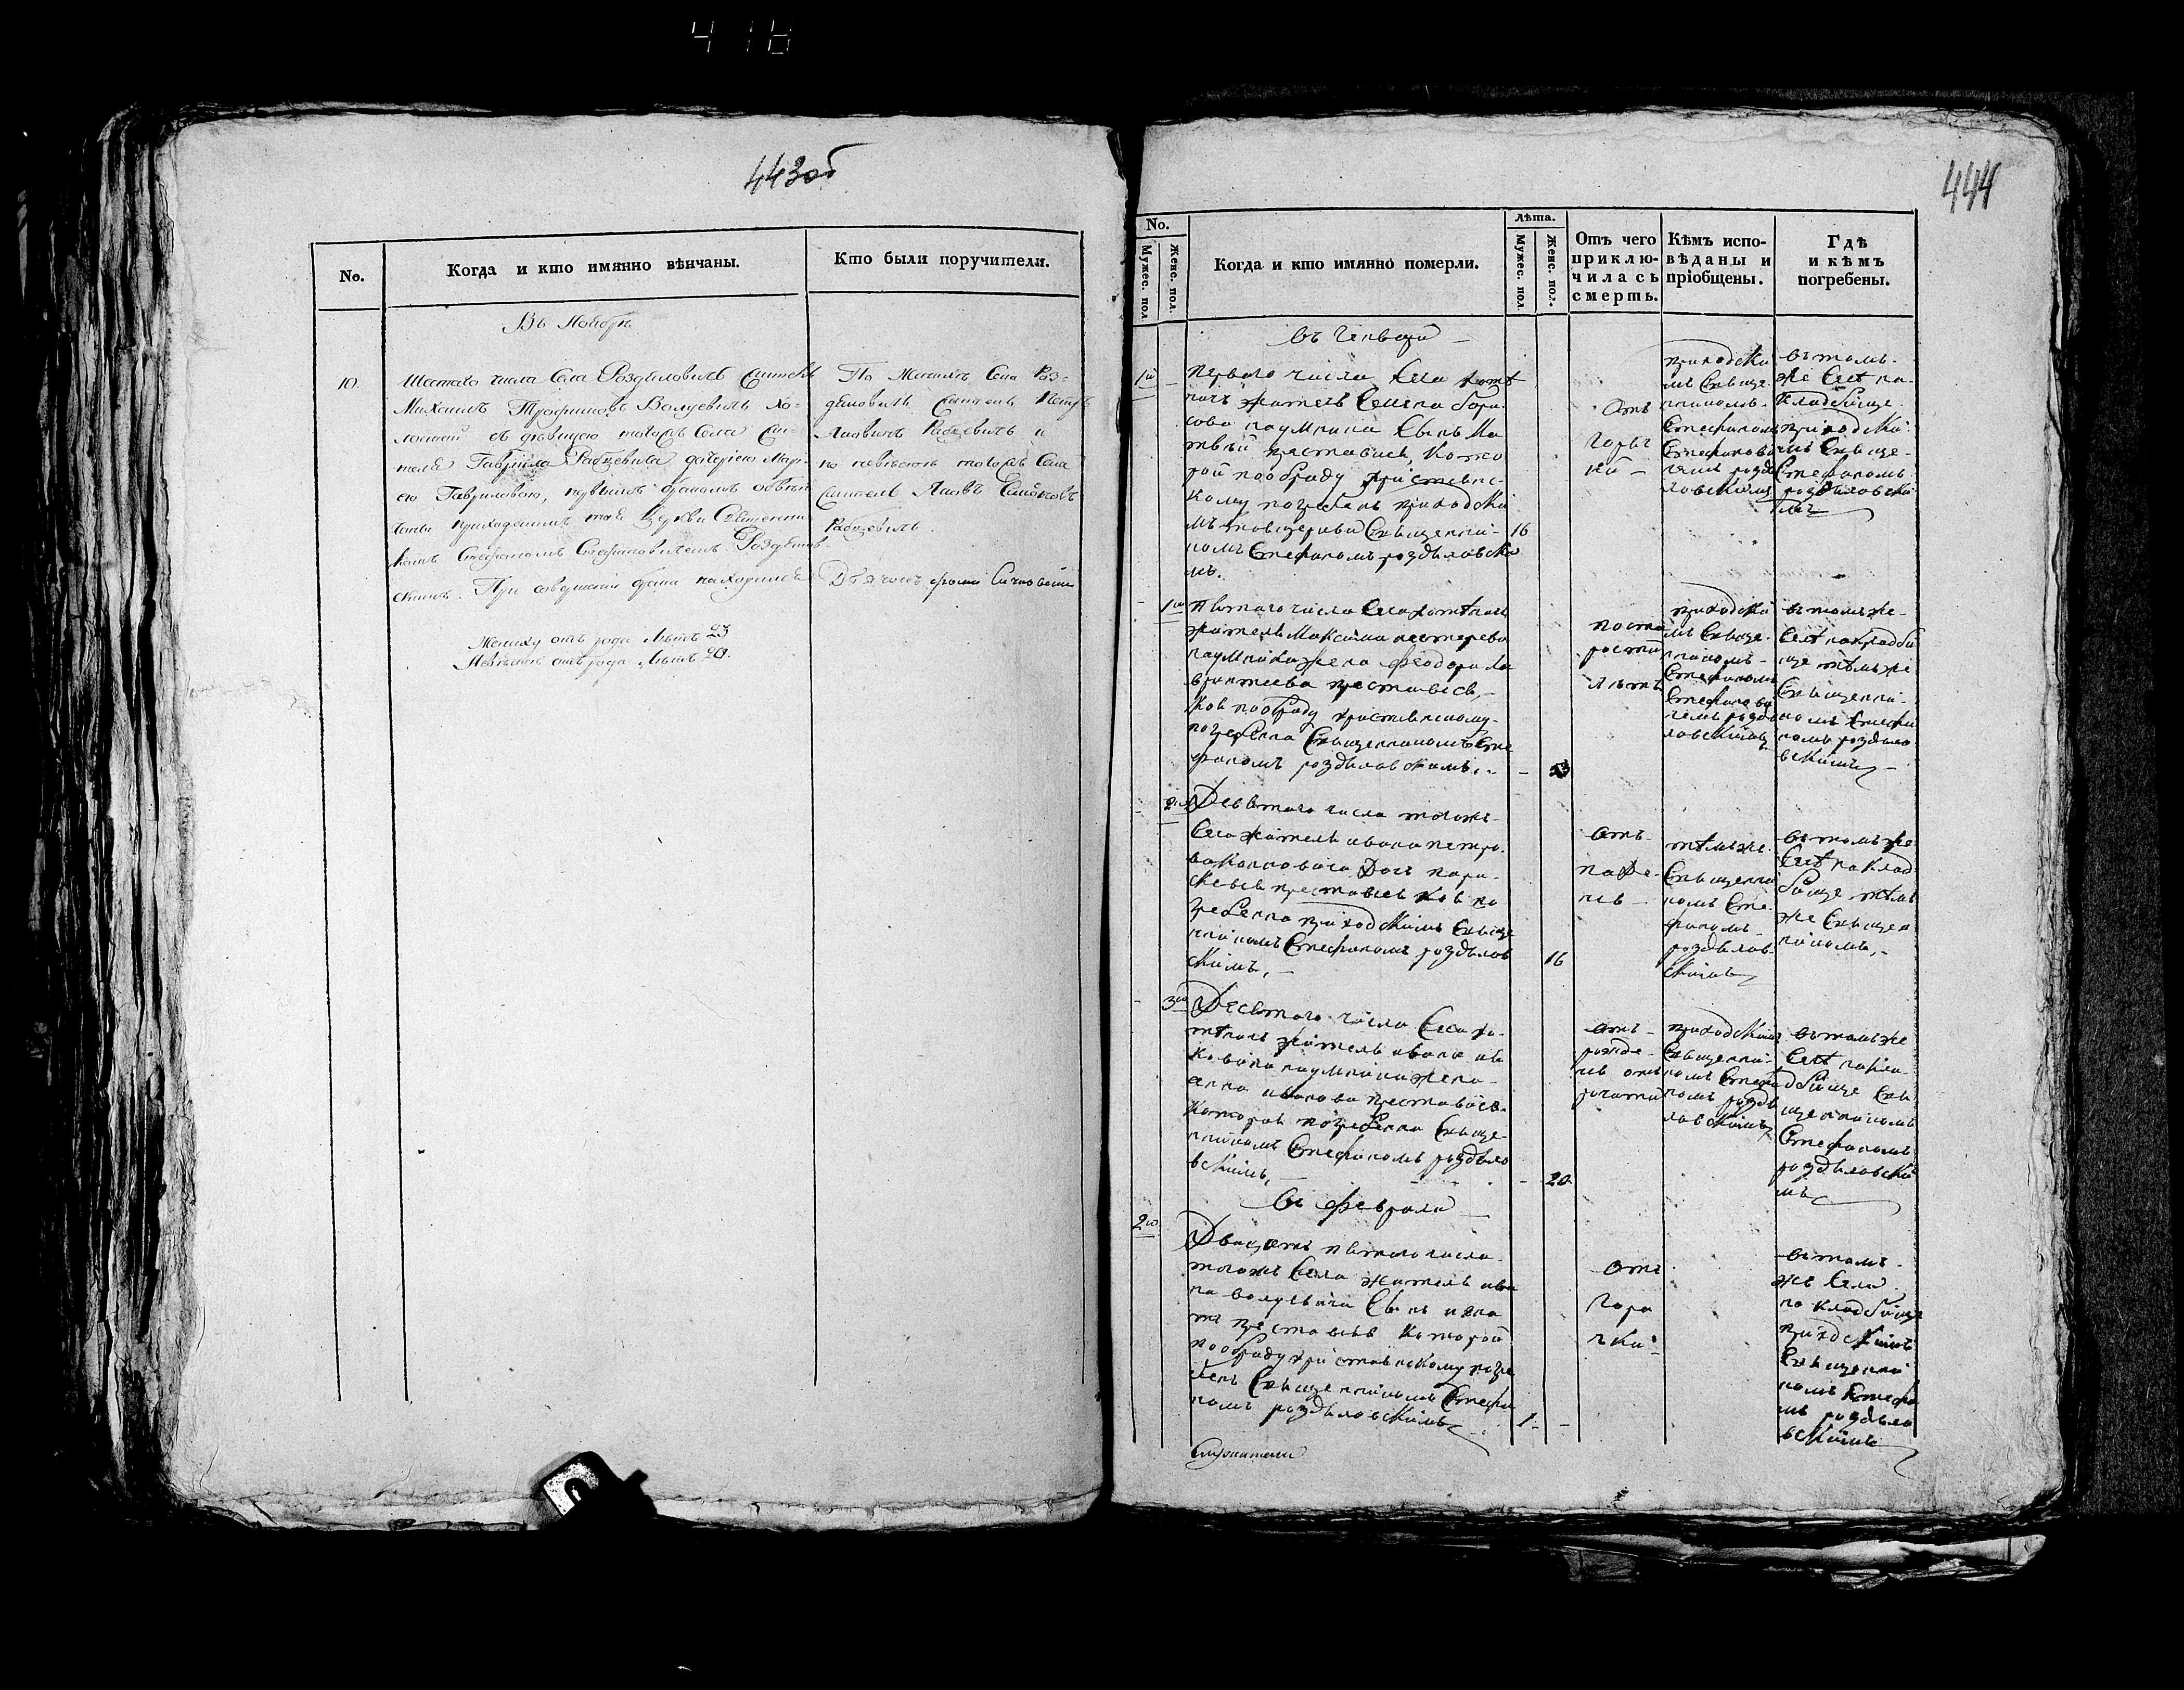 418
443об
No.
Когда и кто имянно вѣнчаны.
Кто были поручители.
Въ Ноябрѣ
10.
Шестаго числа Села Роздѣловичъ житель
Михаилъ Трофимовъ Валуевичъ Хо-
лостой съ дѣвицею тогожъ Села жи-
теля Гавріила дочерію Мар-
ею Гавриловою, первымъ бракомъ обвѣн-
чаны приходскимъ тоя Церкви Священни-
комъ Стефаномъ Стефановичемъ Роздѣлов-
скимъ. При совершеніи брака находился
Жениху отъ рода лѣтъ 23
Невѣстѣ отъ рода лѣтъ 20.
По Женихѣ Села Роз-
дѣловичъ житель
и
по невѣстѣ тогожъ Села
житель Яковъ
Дьячокъ
444
No.
Мужес. пол
Женс. пол.
Когда и кто имянно померли.
Лѣта.
Мужес. пол.
Женс. пол.
Отъ чего
приклю-
чилась
смерть.
Кѣмъ испо-
вѣданы и
пріобщены.
Гдѣ
и кѣмъ
погребены.
въ Генварѣ
1й
Перваго числа Села Хотѣ
ничъ житель Семена Бори-
сова Наумчика Сынъ Ма
твѣй преставися, Кото
рой пообряду христіянс-
кому погребенъ приходски
мъ тоя церкви Священни-
комъ Стефаномъ роздѣловски
мъ.
16
Отъ
Горяч
ки
приходски
мъ Священ
никомъ
Стефаномъ
Стефанови
чемъ розде
ловскимъ
въ томъ-
же Селѣ на-
кладбище
приходски
мъ Священ-
Стефаномъ
роздѣловски
мъ
1я
Пятого числа Села хотѣничъ
жителя Максима нестерева
наумчика жена Феодора Ла
врентиева преставися,
Коя пообряду христіянскому
погребенна Священникомъ Сте
фаномъ роздѣловскимъ.
приходски
мъ Священ-
никомъ
Стефаномъ
Стефанови
чемъ розде
ловскимъ
въ томъ же
Селѣ накладби
ще тѣмъ же
Священни-
комъ Стефа
номъ роздѣло
вскимъ
2я
Девятого числа тогожъ
Села жителя ивана петро-
ва Дочь пара-
скевья преставися Коя по
гребенна приходскимъ Свяще
нникомъ Стефаномъ роздѣлов
скимъ.
16
отъ
паде-
нія
тѣмъ же
Священни
комъ Сте
фаномъ
роздѣлов-
скимъ
въ томъ же
Селѣ наклад
бище тѣмъ
же Священ
никомъ.
3я
Десятого числа Села хо-
тѣничъ жителя ивана
наумчика жена
анна иванова преставися
Которая погребенна Свяще-
нникомъ Стефаномъ роздѣло
вскимъ.
20
отъ
рожде-
нія
приходскимъ
Священни-
комъ Стефа
номъ роздѣ
ловскимъ
въ томъ же
Селѣ накла-
дбище Свя
щенникомъ
Стефаномъ
роздѣловски
мъ
въ Февралѣ
2й
Двацять пятого числа
тогожъ Села жителя ива
на валуевича Сынъ игна
тъ преставися Которой
пообряду христіянскому погре
бенъ Священникомъ Стефа
номъ роздѣловскимъ
1
отъ
Горя
чки
въ томъ
же Селѣ
на кладбище
приходскимъ
Священни
комъ Стефано
мъ роздѣло
вскимъ